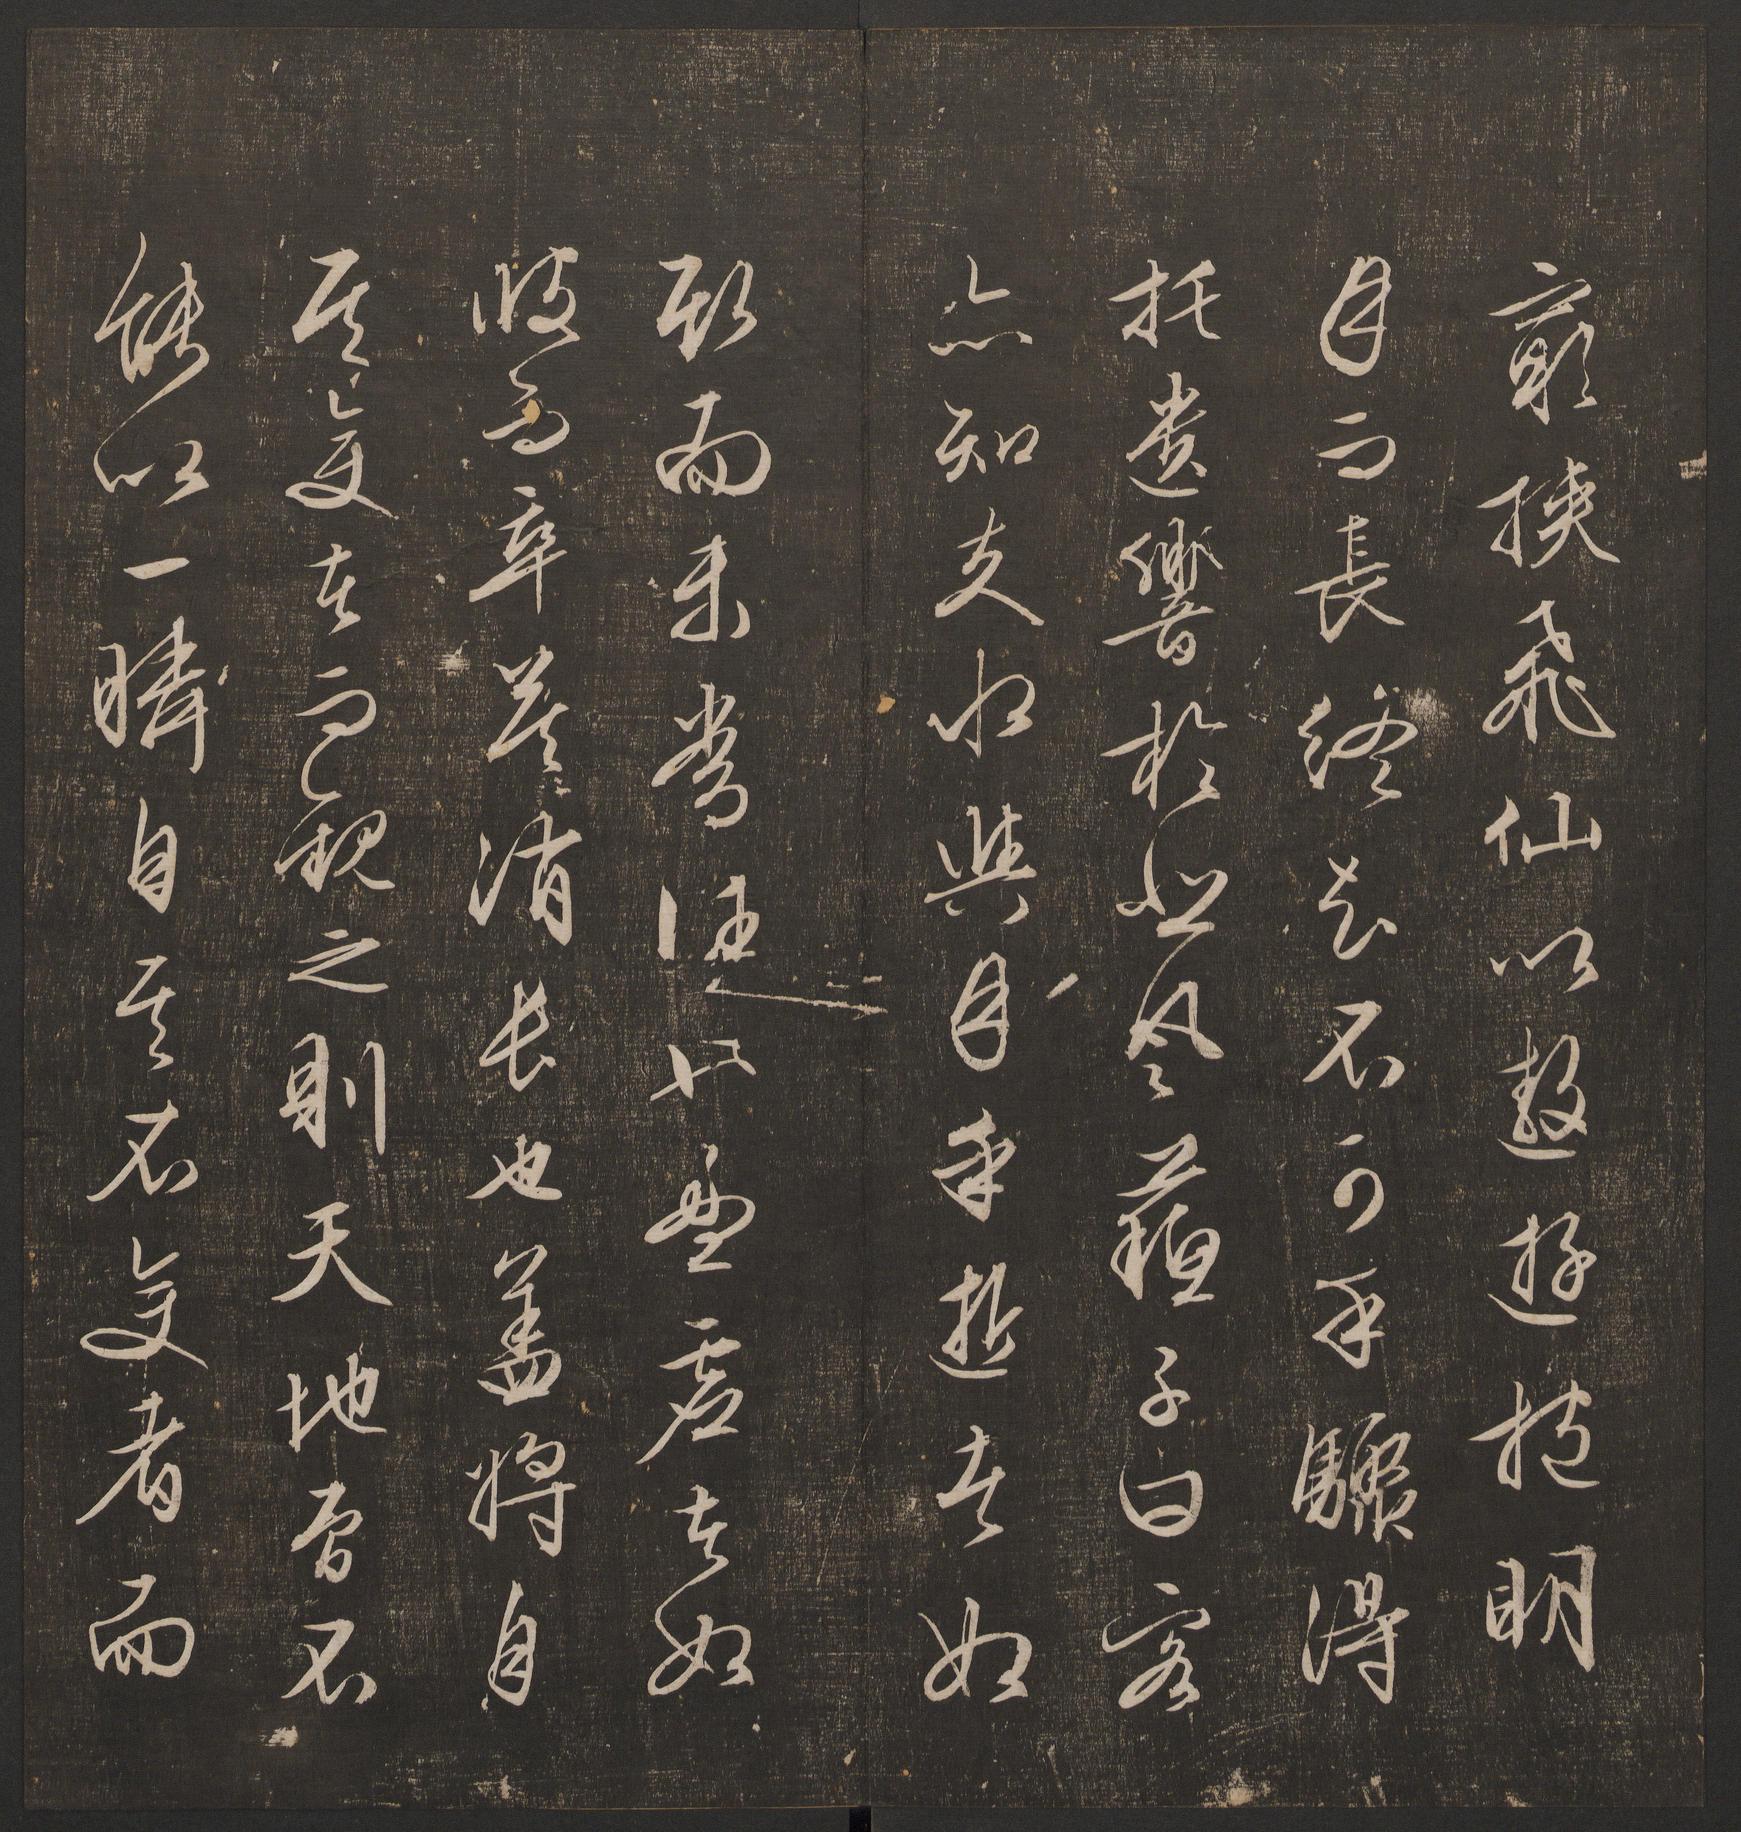 窮挾飛仙以遨遊抱明
月而長終知不可乎驟得
托遺響於悲風蘇子曰客
亦知夫水與月乎逝者如
斯而未嘗往也盈虛者如
彼而卒莫消長也盖將自
其變者而觀之則天地曾不
能以一瞬自其不變者而